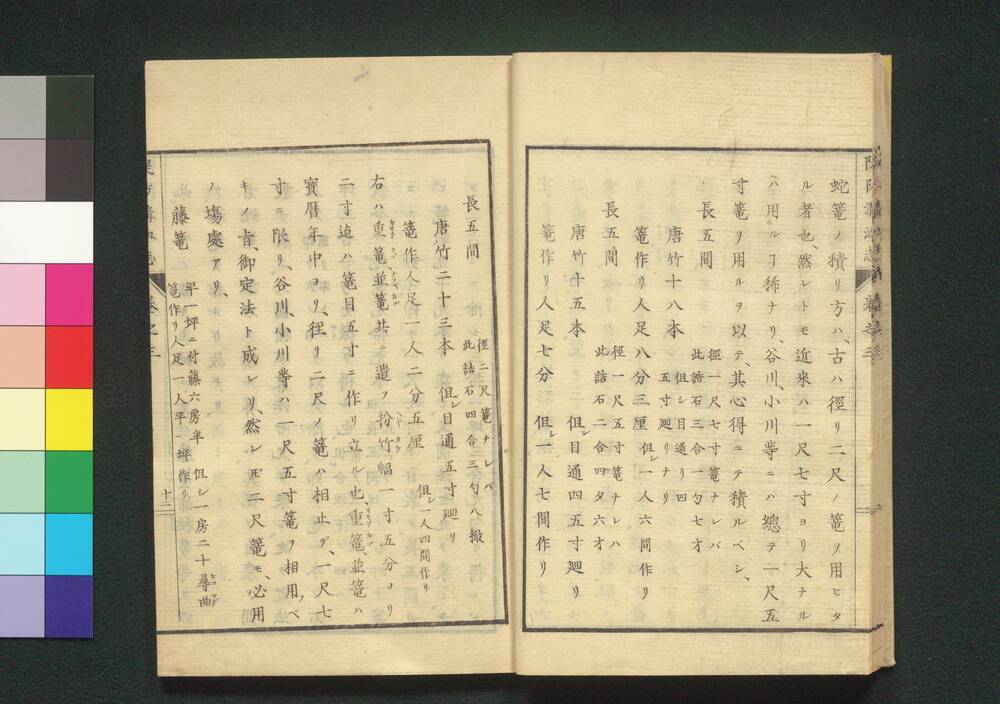 蛇篭ノ積リ方ハ、古ハ徑リ二尺ノ篭ヲ用ヒタ
ル者也、然レトモ近來ハ一尺七寸ヨリ大ナル
ハ用ルヿ稀ナリ、谷川、小川等ニハ總テ一尺五
寸篭ヲ用ルヲ以テ、其心得ニテ積ルベシ、
長五間
徑一尺七寸篭ナレバ
此詰石三合一勺七才
唐竹十八本
但シ目通リ四
五寸廻リナリ
篭作リ人足八分三厘
但シ一人六間作リ
長五間
徑一尺五寸篭ナレハ
此詰石二合四夕六才
唐竹十五本
但シ目通四五寸廻リ
篭作リ人足七分
但シ一人七間作リ
長五間
徑二尺篭ナレバ
此詰石四合三勺八撮
唐竹二十三本
但シ目通五寸廻リ
篭作人足一人二分五厘
但シ一人四間作リ
右ハ重篭、並篭共ニ遣フ枌竹幅一寸五分ヨリ
二寸迫ハ篭目五寸ニ作リ立ル也、重篭、並篭ハ
寳暦年中ヨリ、徑リ二尺ノ篭ハ相止デ、一尺七
寸ニ限リ、谷川、小川等ハ一尺五寸篭ヲ相用ベ
キノ旨、御定法ト成レリ、然レ𪜈二尺篭モ、必用
ノ塲處アリ、
藤篭
平一坪ニ付藤六房半 但シ一房二十尋曲
篭作リ人足一人平一坪作リ
十二